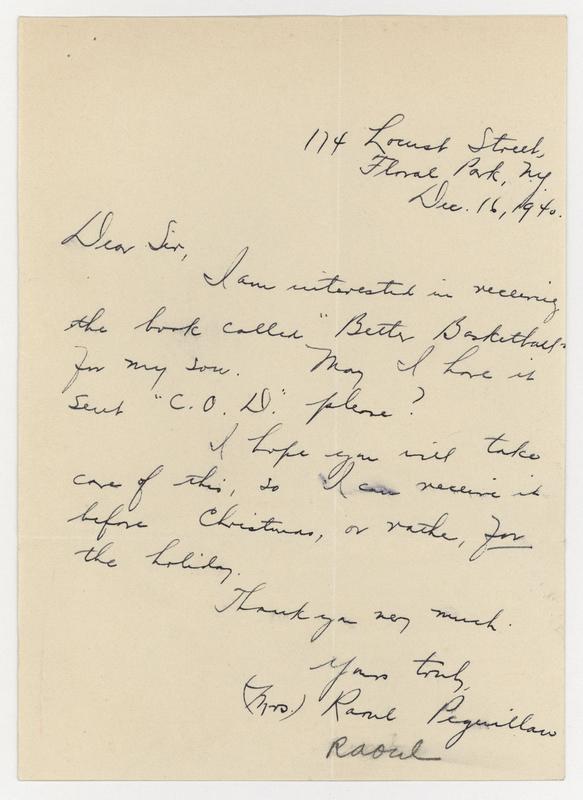 174 Locust Street,
Floral Park, N.Y.
Dec. 16, 1940.
Dear Sir,
I am interested in receiving
the book called "Better Basketball"
for my son. May I have it
sent "C. O. D." please?
I hope you will take
care of this, so I can receive it
before Christmas, or rather, for
the holiday.
Thank you very much.
Yours truly,
(Mrs.) Raoul
Raoul